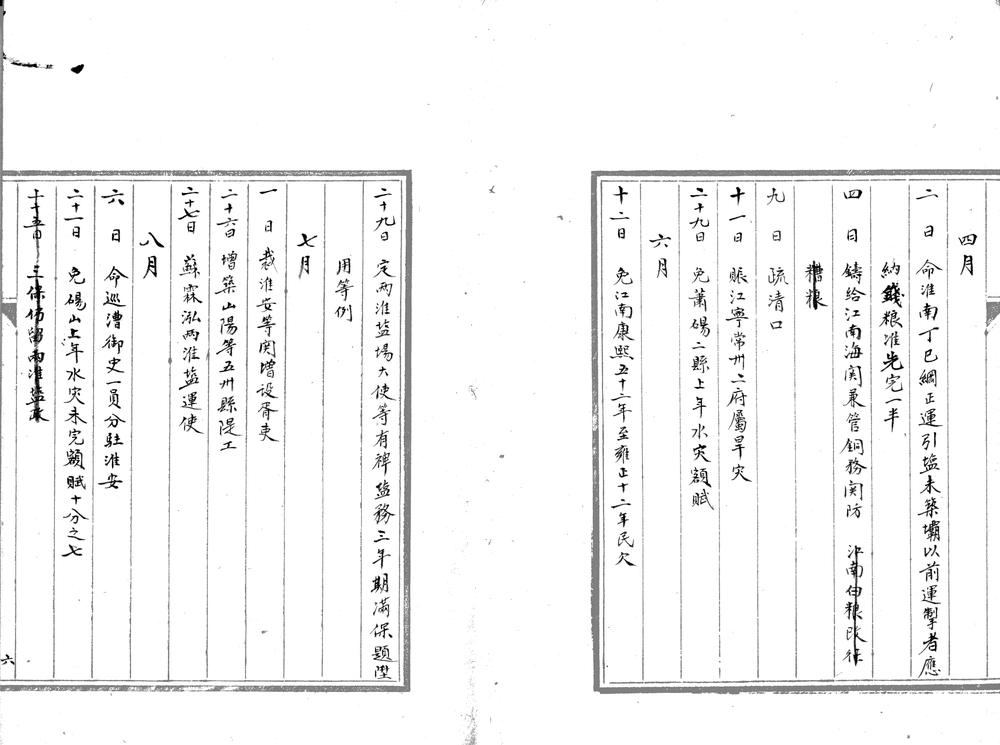 四月
二日 命淮南丁巳綱正運引塩未築壩以前運掣者應
納錢粮准先完一半
四日 鑄給江南海関兼管銅務関防 江南白粮改征
糟粮
九日 疏清口
十一日 賑江寧常州二府屬旱灾
二十九日 免蕭碭二縣上年水灾額賦
六月
十二日 免江南康熙五十二年至雍正十二年民欠
二十九日 定两淮盐場大使等有裨盐務三年期滿保題陞
用等例
七月
一日 裁淮安等関增设胥吏
二十六日 增築山陽等五州縣隄工
二十七日 蘇霖泓两淮盐運使
八月
六日 命巡漕御史一員分駐淮安
二十一日 免碭山上年水灾未完額賦十分之七
二十五日 三保仍留两淮盐政
六